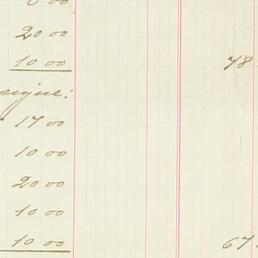 20 00
10 00 78
17 00
10 00
20 00
10 00
10 00 67